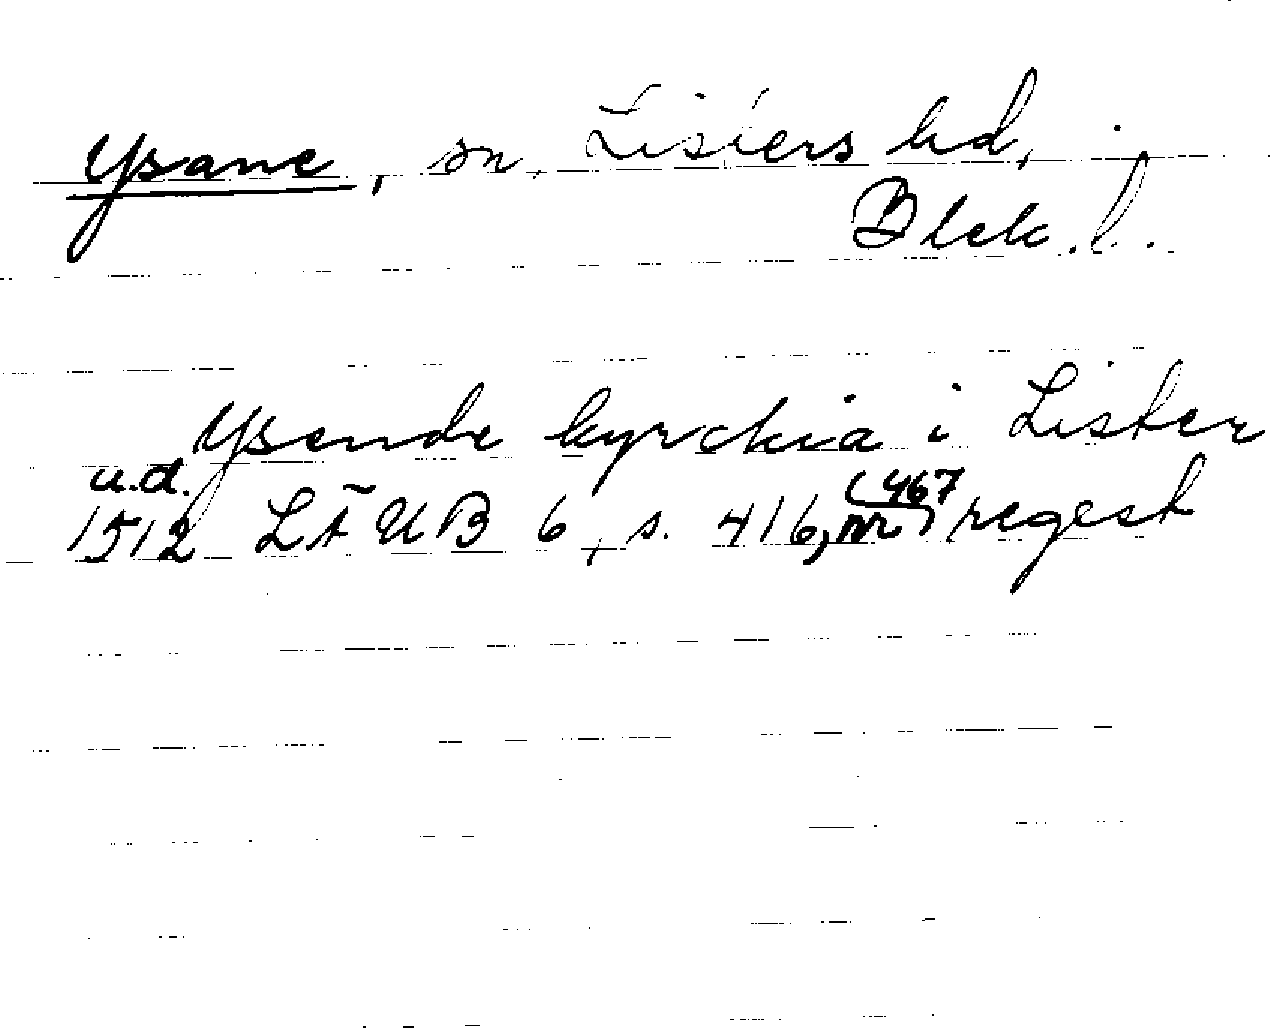 Ysane, sn, Listers hd,
Blek. l.
Ysende kyrckia i Lister
u.d.
1512 LÄUB 6, s. 416, nr 467 regest